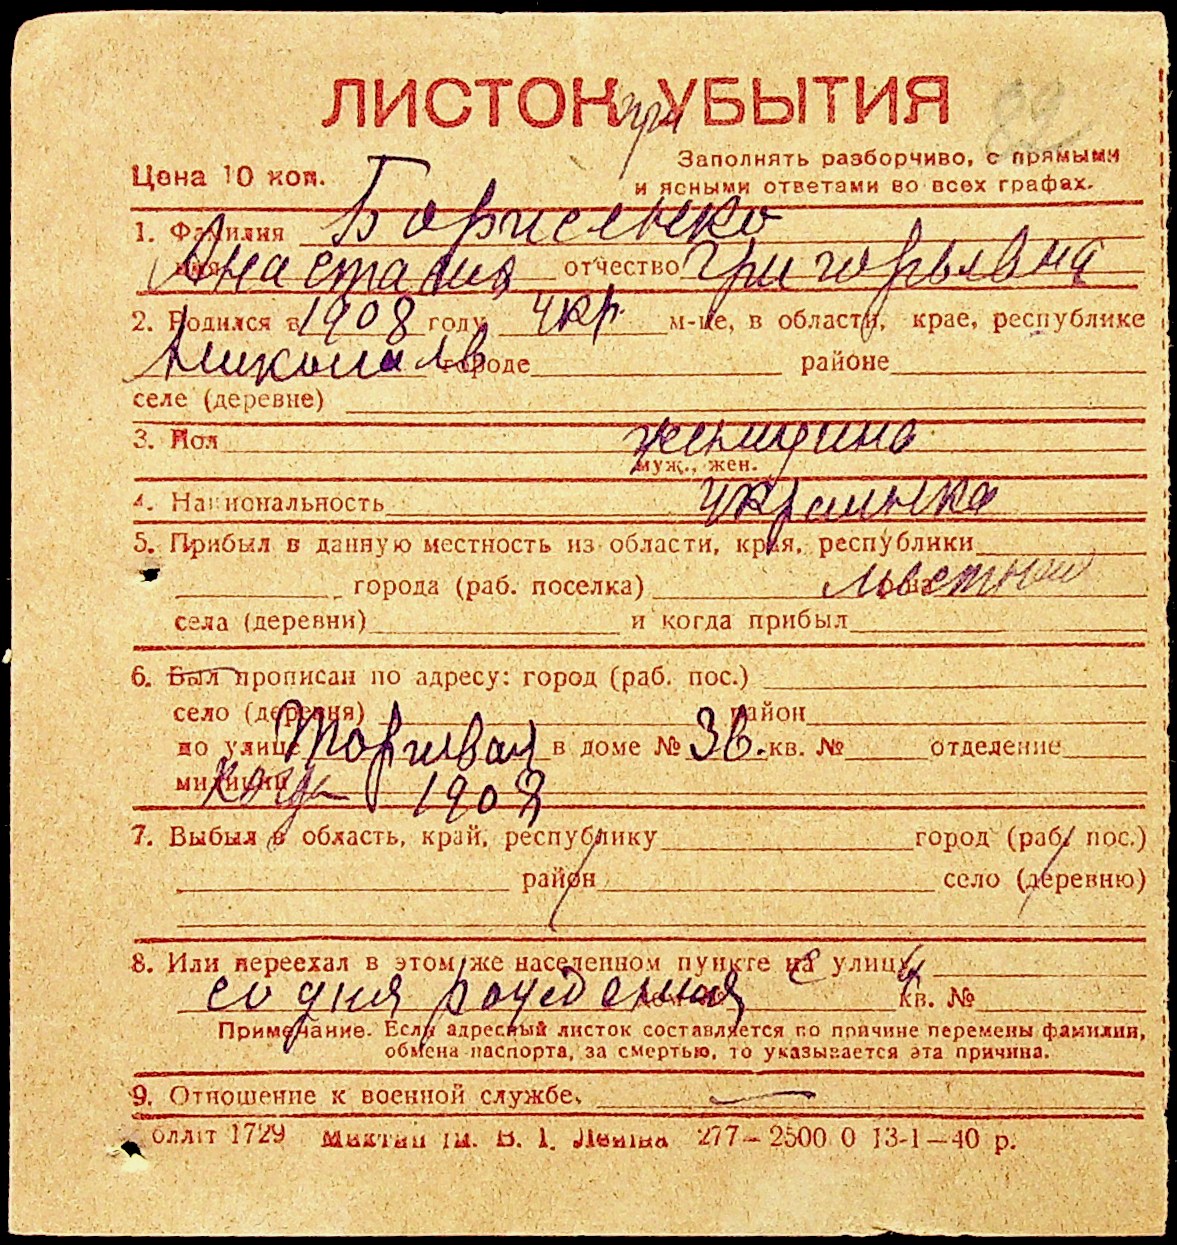 ЛИСТОК при УБЫТИЯ
82
Цена 10 коп.
Заполнять разборчиво, с прямыми
и ясными ответами во всех графах.
1. Фамилия Борисенко
имя Анастасия отчество Григорьевна
2. Родился в 1908 году укр. м-це, в области, крае, республике
Николаев городе районе
селе (деревне)
3. Пол женщина
муж., жен.
4. Национальность украинка
5. Прибыл в данную местность из области, края, республики
города (раб. поселка) местная
села (деревни) и когда прибыл
6. Был прописан по адресу: город (раб. пос.)
село (деревня) район
по улице Торговая в доме № 36. кв. № отделение
милиции когда 1908
7. Выбыл в область, край, республику город (раб. пос.)
район село (деревню)
8. Или переехал в этом же населенном пункте на улицу
со дня рождения кв. №
Примечание. Если адресный листок составляется по причине перемены фамилии,
обмена паспорта, за смертью, то указывается эта причина.
9. Отношение к военной службе,
обліт 1729 ім. В. І. Леніна 277—2500 0 13-1—40 р.